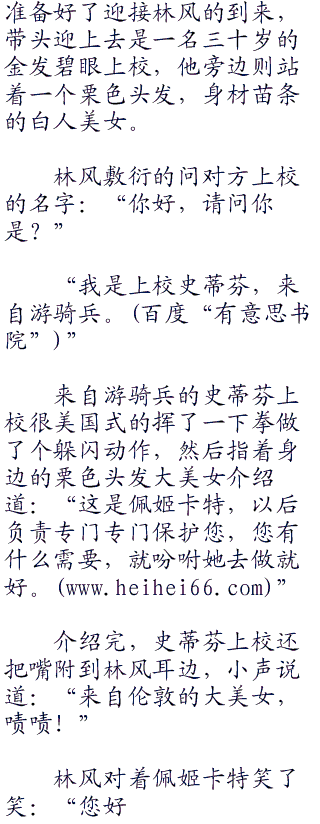 准备好了迎接林风的到来，
带头迎上去是一名三十岁的
金发碧眼上校，他旁边则站
着一个栗色头发，身材苗条
的白人美女。
林风敷衍的问对方上校
的名字：“你好，请问你
是？”
“我是上校史蒂芬，来
自游骑兵。(百度“有意思书
院”)”
来自游骑兵的史蒂芬上
校很美国式的挥了一下拳做
了个躲闪动作，然后指着身
边的栗色头发大美女介绍
道：“这是佩姬卡特，以后
负责专门专门保护您，您有
什么需要，就吩咐她去做就
好。(www.heihei66.com)”
介绍完，史蒂芬上校还
把嘴附到林风耳边，小声说
道：“来自伦敦的大美女，
啧啧！”
林风对着佩姬卡特笑了
笑：“您好